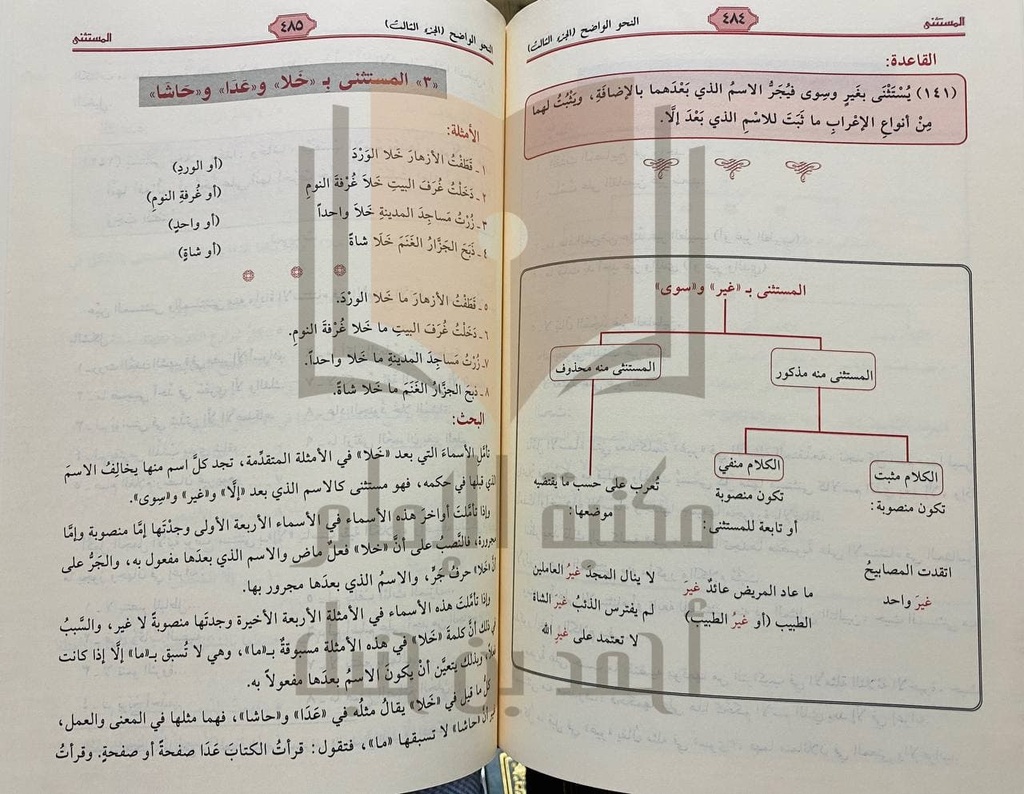 المستثنى
٤٨٤
النحو الواضح (الجزء الثالث)
القاعدة:
(١٤١) يُسْتَثْنَى بغَيرٍ وسِوى فيُجَرُّ الاسمُ الذي بَعْدَهما بالإضافَةِ، ويَثْبُتُ لهما
مِنْ أنواعِ الإعْرابِ ما ثَبَتَ للاسْمِ الذي بَعْدَ إلَّا.
المستثنى بـ «غير» و«سوى»
المستثنى منه مذكور
المستثنى منه محذوف
الكلام مثبت
الكلام منفي
تكون منصوبة:
تكون منصوبة
أو تابعة للمستثنى:
تُعرب على حسب ما يقتضيه
موضعها:
اتقدت المصابيحُ
غيرَ واحد
ما عاد المريض عائدٌ غير
الطبيب (أو غيرُ الطبيب)
لا ينال المجدَ غيرُ العاملين
لم يفترس الذئبُ غيرَ الشاة
لا تعتمد على غيرِ الله
النحو الواضح (الجزء الثالث)
٤٨٥
المستثنى
«٣» المستثنى بـ «خَلا» و«عَدَا» و«حَاشَا»
الأمثلة:
١ ـ قَطَفْتُ الأزهارَ خَلا الوَرْدَ (أو الوردِ)
٢ـ دَخَلْتُ غُرَفَ البيتِ خَلاَ غُرْفةَ النومِ (أو غُرفةِ النومِ)
٣ـ زُرْتُ مَساجِدَ المدينةِ خَلاَ واحداً (أو واحدٍ)
٤ـ ذَبَحَ الجَزَّارُ الغَنَمَ خَلَا شاةً (أو شاةٍ)
٥ ـ قَطَفْتُ الأزهارَ ما خَلا الورْدَ.
٦ـ دَخَلْتُ غُرَفَ البيتِ ما خَلا غُرْفةَ النومِ.
٧ـ زُرْتُ مَساجِدَ المدينةِ ما خَلا واحداً.
٨ـ ذبَحَ الجزَّارُ الغَنَمَ ما خَلا شاةً.
البحث:
تأمَّلِ الأسماءَ التي بعد «خَلا» في الأمثلة المتقدِّمة، تجد كلَّ اسم منها يخالِفُ الاسمَ
الذي قبلها في حكمه، فهو مستثنى كالاسم الذي بعد «إلَّا» و«غير» و«سِوى».
وإذا تأملتَ أواخرَ هذه الأسماء في الأسماء الأربعة الأولى وجدْتَها إمَّا منصوبة وإمَّا
مجرورة، فالنَّصبُ على أنَّ «خلا» فعلٌ ماض والاسم الذي بعدَها مفعول به، والجَرُّ على
أن «خلا» حرفُ جَرٍّ، والاسمُ الذي بعدَها مجرور بها.
وإذا تأملتَ هذه الأسماء في الأمثلة الأربعة الأخيرة وجدتَها منصوبةً لا غير، والسَّببُ
في ذلك أنَّ كلمةَ «خَلا» في هذه الأمثلة مسبوقةٌ بـ«ما»، وهي لا تُسبق بـ«ما» إلَّا إذا كانت
فعلاً، وبذلك يتعيَّن أنْ يكونَ الاسمُ بعدَها مفعولاً به.
كلُّ ما قيل في «خَلا» يقالُ مثلُه في «عَدَا» و«حاشا»، فهما مثلها في المعنى والعمل،
غير أن «حاشا» لا تسبقها «ما»، فتقول: قرأتُ الكتابَ عَدَا صفحةً أو صفحةٍ. وقرأتُ
مكتبة الإمام
أحمد بن حنبل